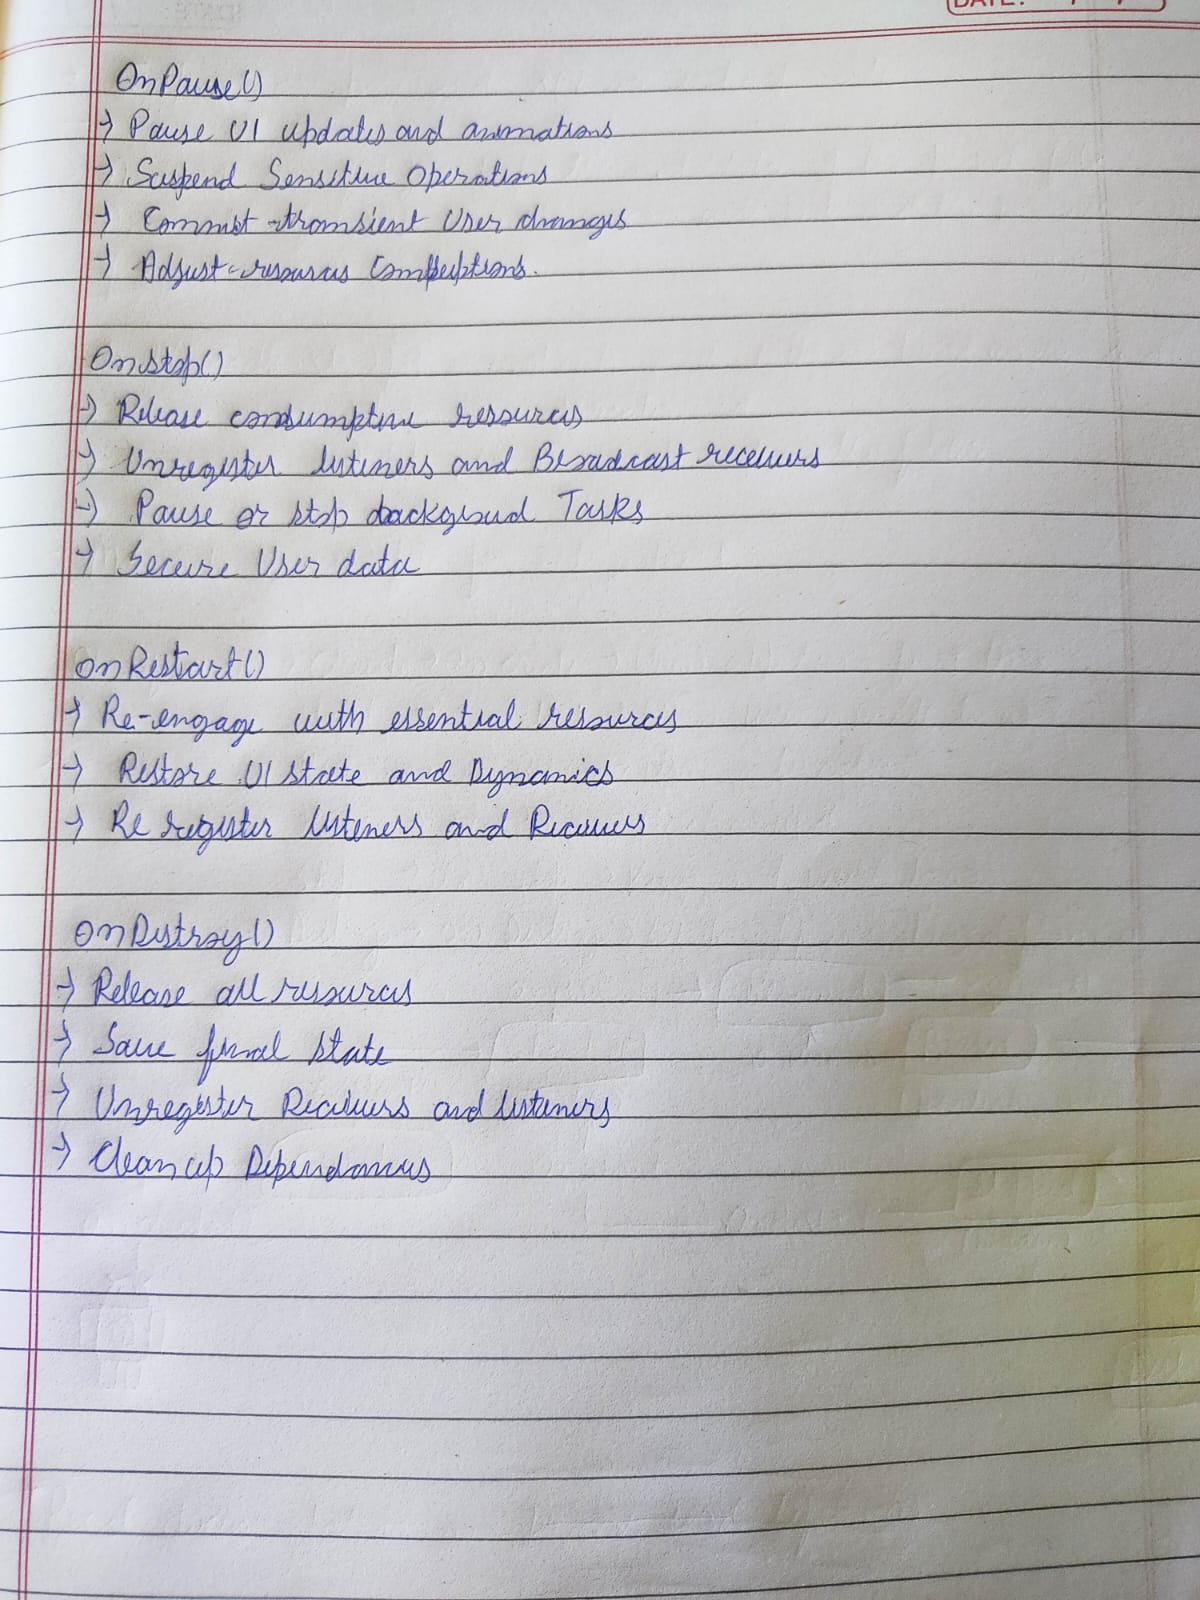 DATE:
OnPause()
→ Pause UI updates and animations
→ Suspend Sensitive Operations
→ Commit transient User changes
→ Adjust resources
OnStop()
→ Release consumptive resources
→ Unregister listeners and Broadcast receivers
→ Pause or stop backgroud Tasks
→ Secure User data
onRestart()
→ Re-engage with essential resources
→ Restore UI state and Dynamics
→ Re register listeners and Receivers
onDestroy()
→ Release all resources
→ Save final state
→ Unregister Receivers and listeners
→ Clean up